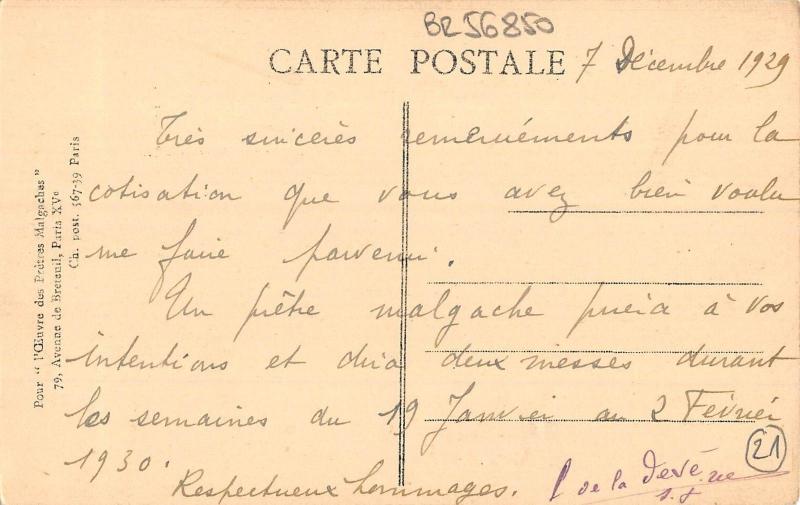 BR56850
CARTE POSTALE 7 Décembre 1929
Très sincères remerciements pour la
cotisation que vous avez bien voulu
me faire parvenir.
Un prêtre malgache priera à vos
intentions et dira deux messes durant
les semaines du 19 Janvier au 2 Février
1930.
Respectueux hommages.
de la Devé
s.j.
21
Pour " l'Œuvre des Prêtres Malgaches "
79, Avenue de Breteuil, Paris XVe
Ch. post. 567-39 Paris